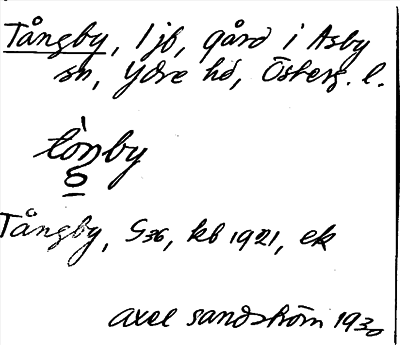 Tångby, 1 jb, gård i Asby
sn, Ydre hd, Österg. l.
tònby
o
Tångby, G36, kb 1921, ek
axel sandström 1930